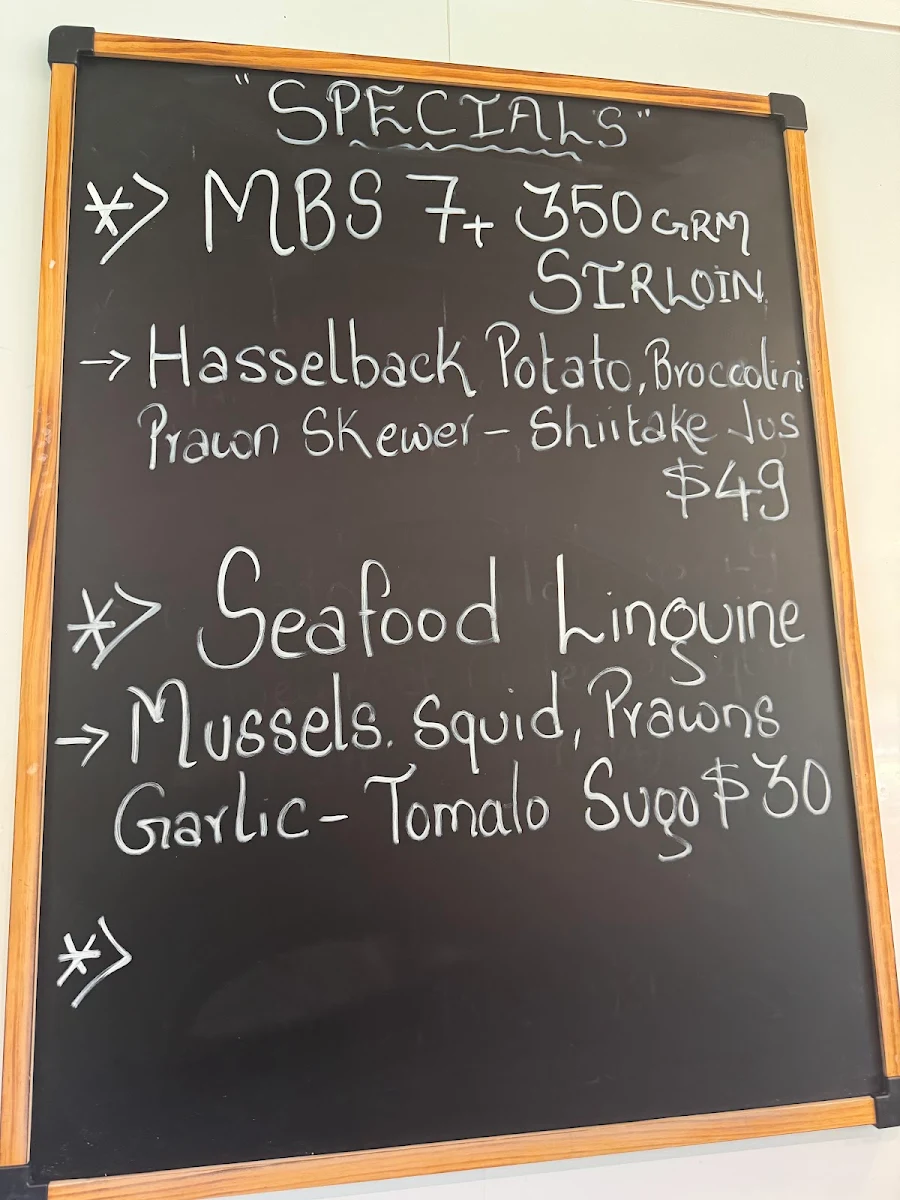 "SPECIALS"
*> MBS 7+ 350 GRM
SIRLOIN
→ Hasselback Potato, Broccolini
Prawn Skewer - Shiitake Jus
$49
*> Seafood Linguine
→ Mussels. Squid, Prawns
Garlic - Tomalo Sugo $30
*>